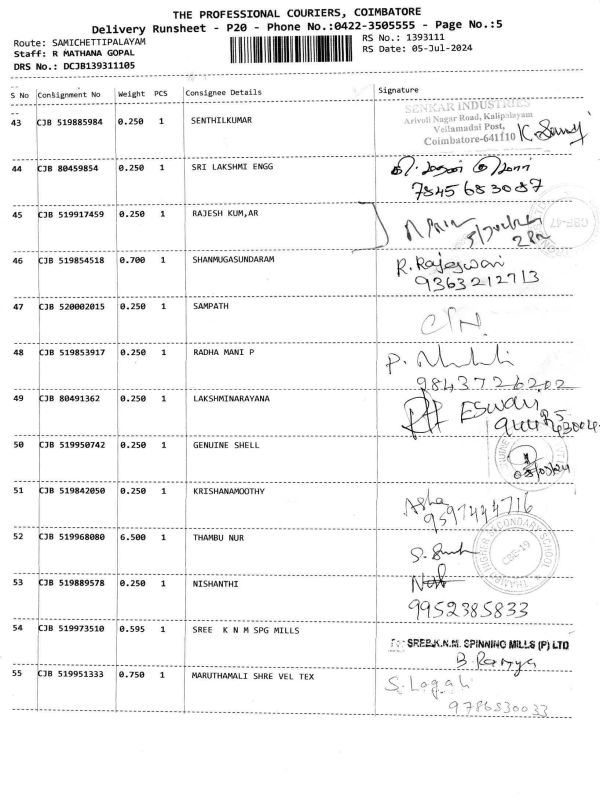 THE PROFESSIONAL COURIERS, COIMBATORE
Delivery Runsheet - P20 - Phone No.:0422-3505555 - Page No.:5
Route: SAMICHETTIPALAYAM
Staff: R MATHANA GOPAL
DRS No.: DCJB139311105
RS No.: 1393111
RS Date: 05-Jul-2024
S No Consignment No Weight PCS Consignee Details Signature
43 CJB 519885984 0.250 1 SENTHILKUMAR
SENKAR INDUSTRIES
Arivoli Nagar Road, Kalipalayam
Vellamadai Post,
Coimbatore-641110
44 CJB 80459854 0.250 1 SRI LAKSHMI ENGG
7845683087
45 CJB 519917459 0.250 1 RAJESH KUM,AR
CBE-47
46 CJB 519854518 0.700 1 SHANMUGASUNDARAM
R. Rajeswari
9363212713
47 CJB 520002015 0.250 1 SAMPATH
48 CJB 519853917 0.250 1 RADHA MANI P
9843726202
49 CJB 80491362 0.250 1 LAKSHMINARAYANA
ESWAR
50 CJB 519950742 0.250 1 GENUINE SHELL
51 CJB 519842050 0.250 1 KRISHANAMOOTHY
Asha
9597444716
52 CJB 519968080 6.500 1 THAMBU NUR
HIGHER SECONDARY SCHOOL
CBE-19
53 CJB 519889578 0.250 1 NISHANTHI
9952385833
54 CJB 519973510 0.595 1 SREE K N M SPG MILLS
For SREE.K.N.M. SPINNING MILLS (P) LTD
B. Ramya
55 CJB 519951333 0.750 1 MARUTHAMALI SHRE VEL TEX
S. Logali
9786830033